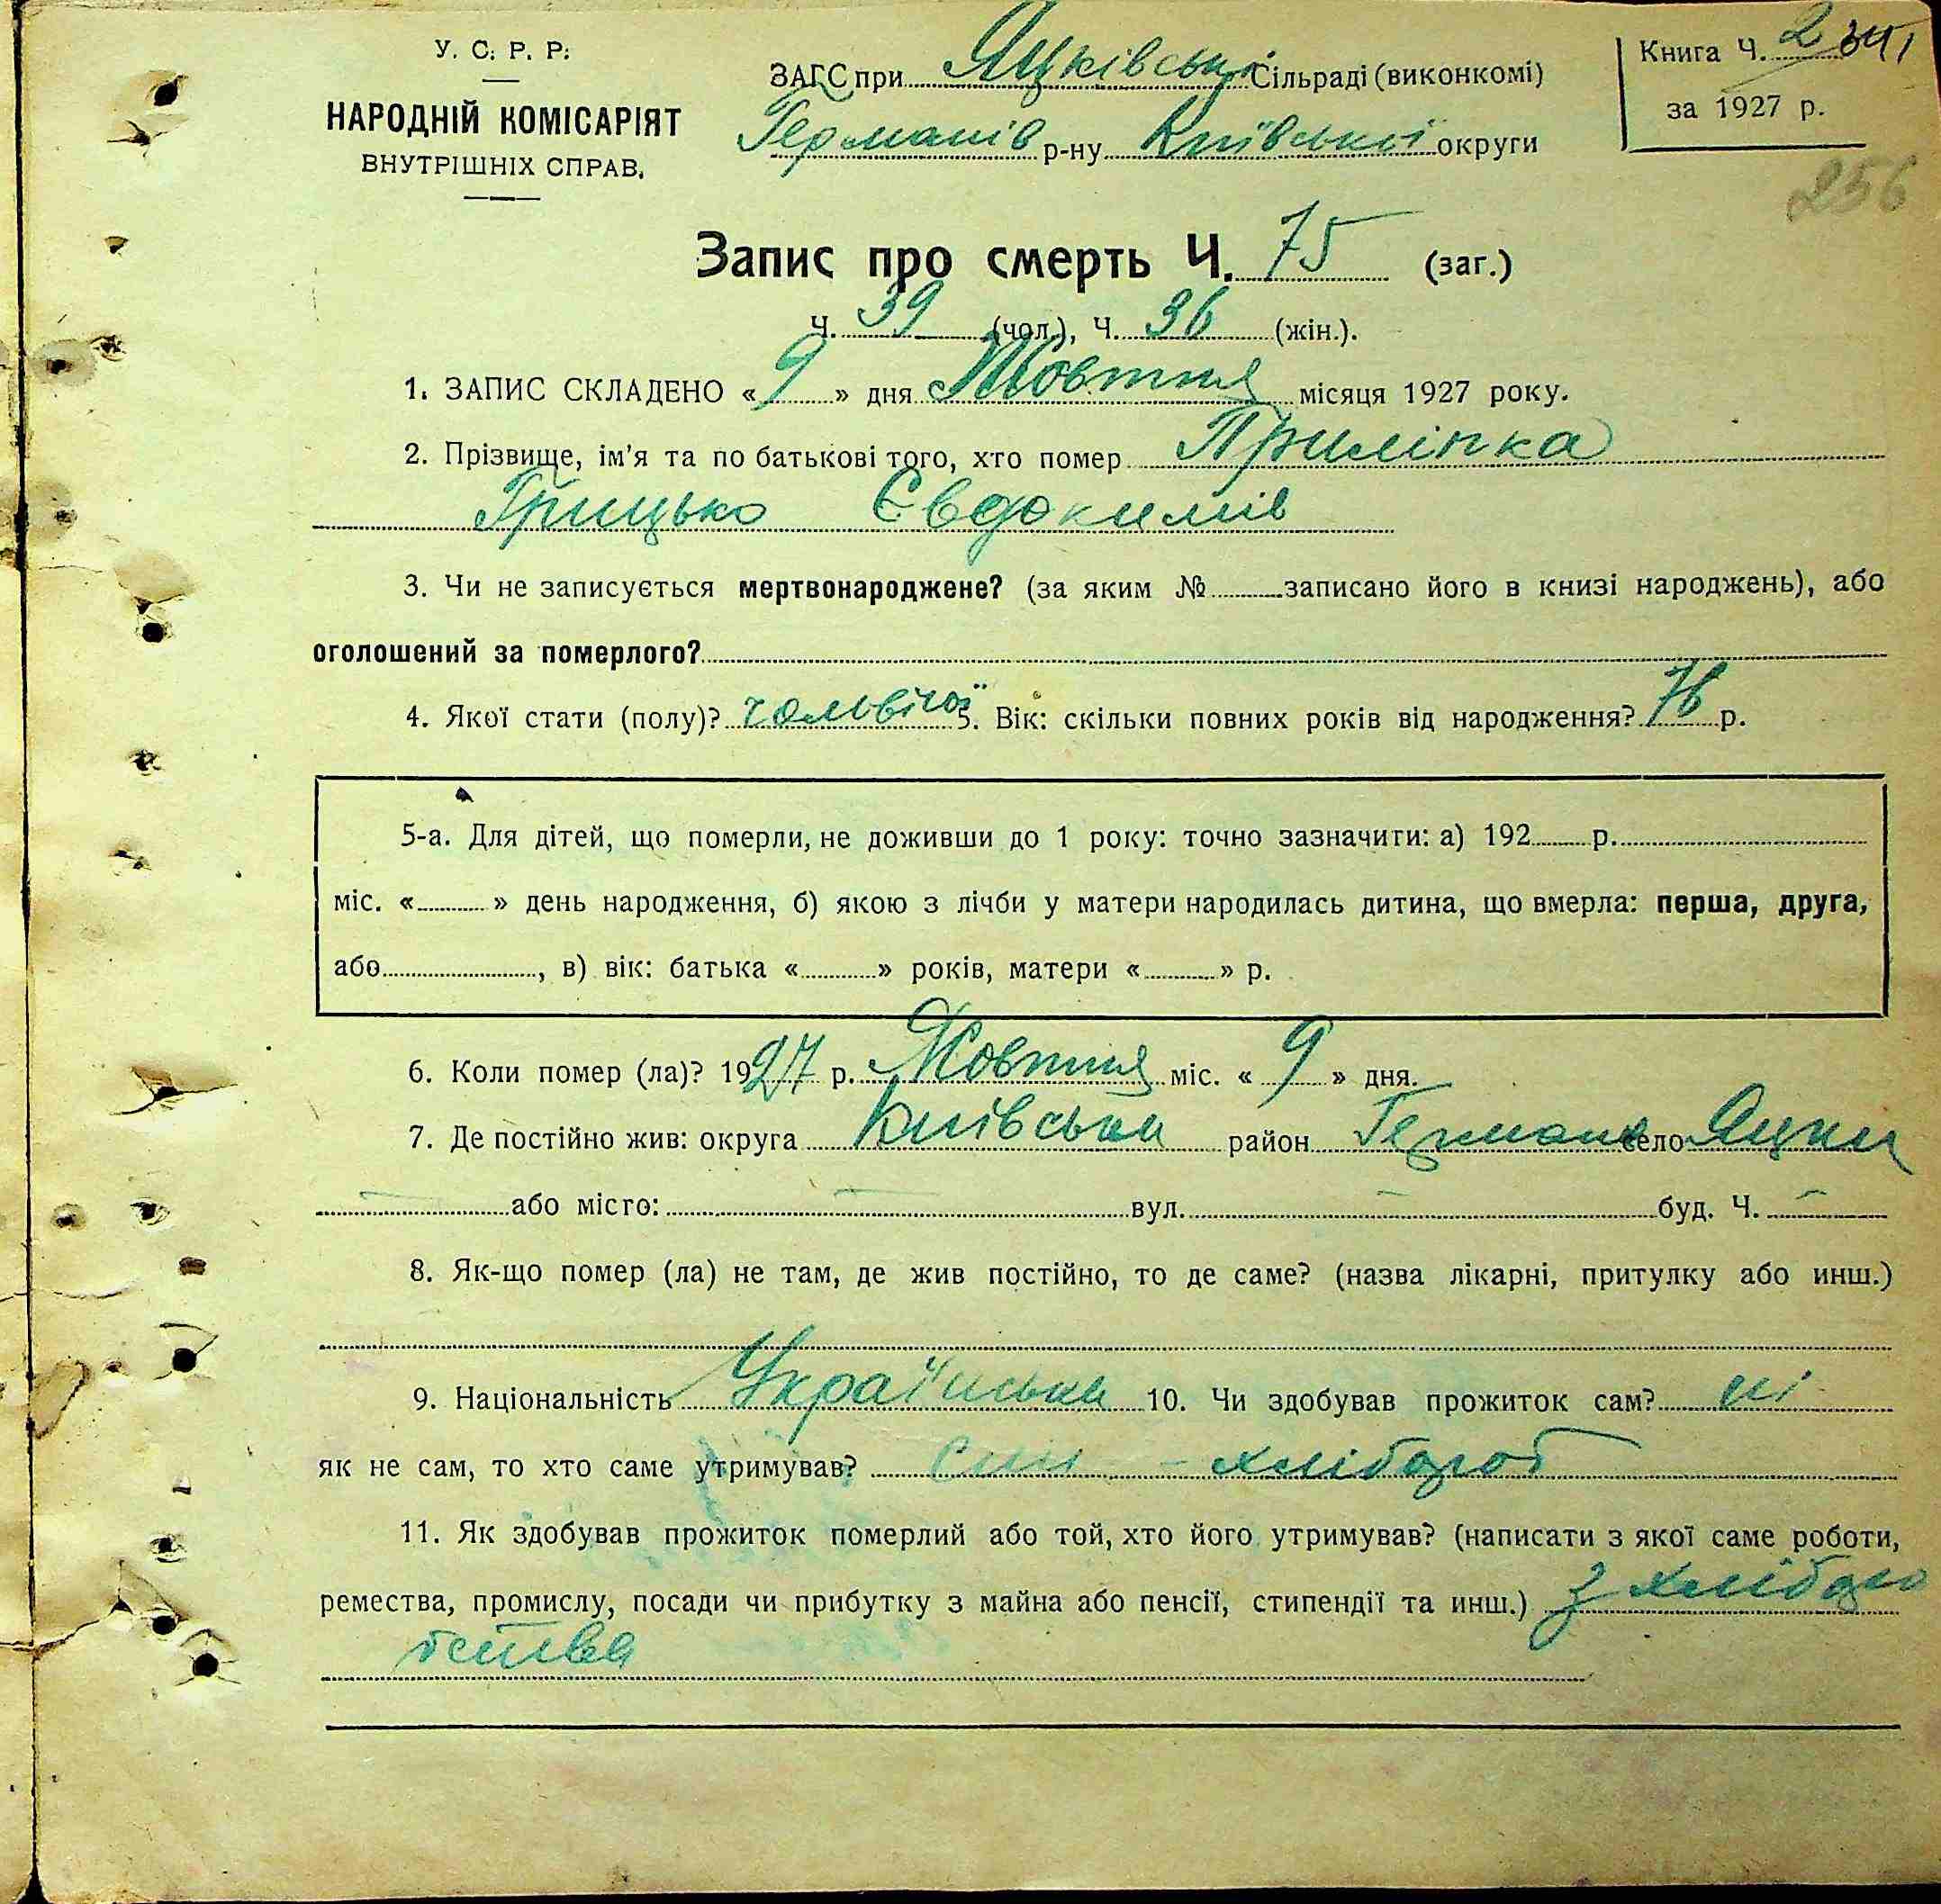 У. С. Р. Р.
НАРОДНІЙ КОМІСАРІЯТ
ВНУТРІШНІХ СПРАВ.
ЗАГС при Яцківській Сільраді (виконкомі)
Германів р-ну Київської округи
Книга Ч. 2
за 1927 р.
256
Запис про смерть Ч. 75 (заг.)
Ч. 39 (чол.), Ч. 36 (жін.).
1. ЗАПИС СКЛАДЕНО « 9 » дня Жовтня місяця 1927 року.
2. Прізвище, ім'я та по батькові того, хто помер Приліпка
Грицько Євдокимів
3. Чи не записується мертвонароджене? (за яким № записано його в книзі народжень), або
оголошений за померлого?
4. Якої стати (полу)? чоловічої 5. Вік: скільки повних років від народження? 76 р.
5-а. Для дітей, що померли, не доживши до 1 року: точно зазначити: а) 192 р.
міс. « » день народження, б) якою з лічби у матери народилась дитина, що вмерла: перша, друга,
або , в) вік: батька « » років, матери « » р.
6. Коли помер (ла)? 1927 р. Жовтня міс. « 9 » дня.
7. Де постійно жив: округа Київська район Герман село Яцки
або місто: — вул. — буд. Ч. —
8. Як-що помер (ла) не там, де жив постійно, то де саме? (назва лікарні, притулку або инш.)
9. Національність Українська 10. Чи здобував прожиток сам? ні
як не сам, то хто саме утримував? син - хлібороб
11. Як здобував прожиток померлий або той, хто його утримував? (написати з якої саме роботи,
ремества, промислу, посади чи прибутку з майна або пенсії, стипендії та инш.) з хліборо
бства